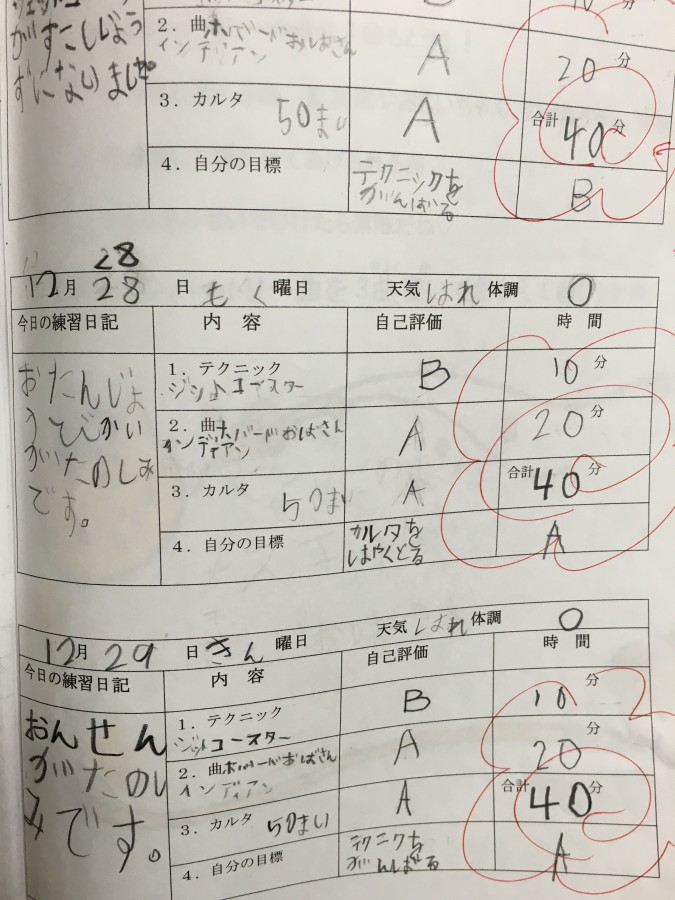 がすこしじょう
ずになりました
2. 曲 ホバーバおばさん A 20分
インディアン
3. カルタ 50まい A 合計 40分
4. 自分の目標 テクニックを B
がんばる
28
12月 28日 もく曜日 天気 はれ 体調 〇
今日の練習日記 内容 自己評価 時間
おたんじょ
うびかい
がたのしみ
です。
1. テクニック B 10分
ジェットコースター
2. 曲 ホバーバおばさん A 20分
インディアン
3. カルタ 50まい A 合計 40分
4. 自分の目標 カルタを A
はやくとる
12月 29日 きん曜日 天気 はれ 体調 〇
今日の練習日記 内容 自己評価 時間
おんせん
がたのし
みです。
1. テクニック B 10分
ジェットコースター
2. 曲 おばさん A 20
インディアン
3. カルタ 50まい A 合計 40分
4. 自分の目標 テクニックを A
がんばる